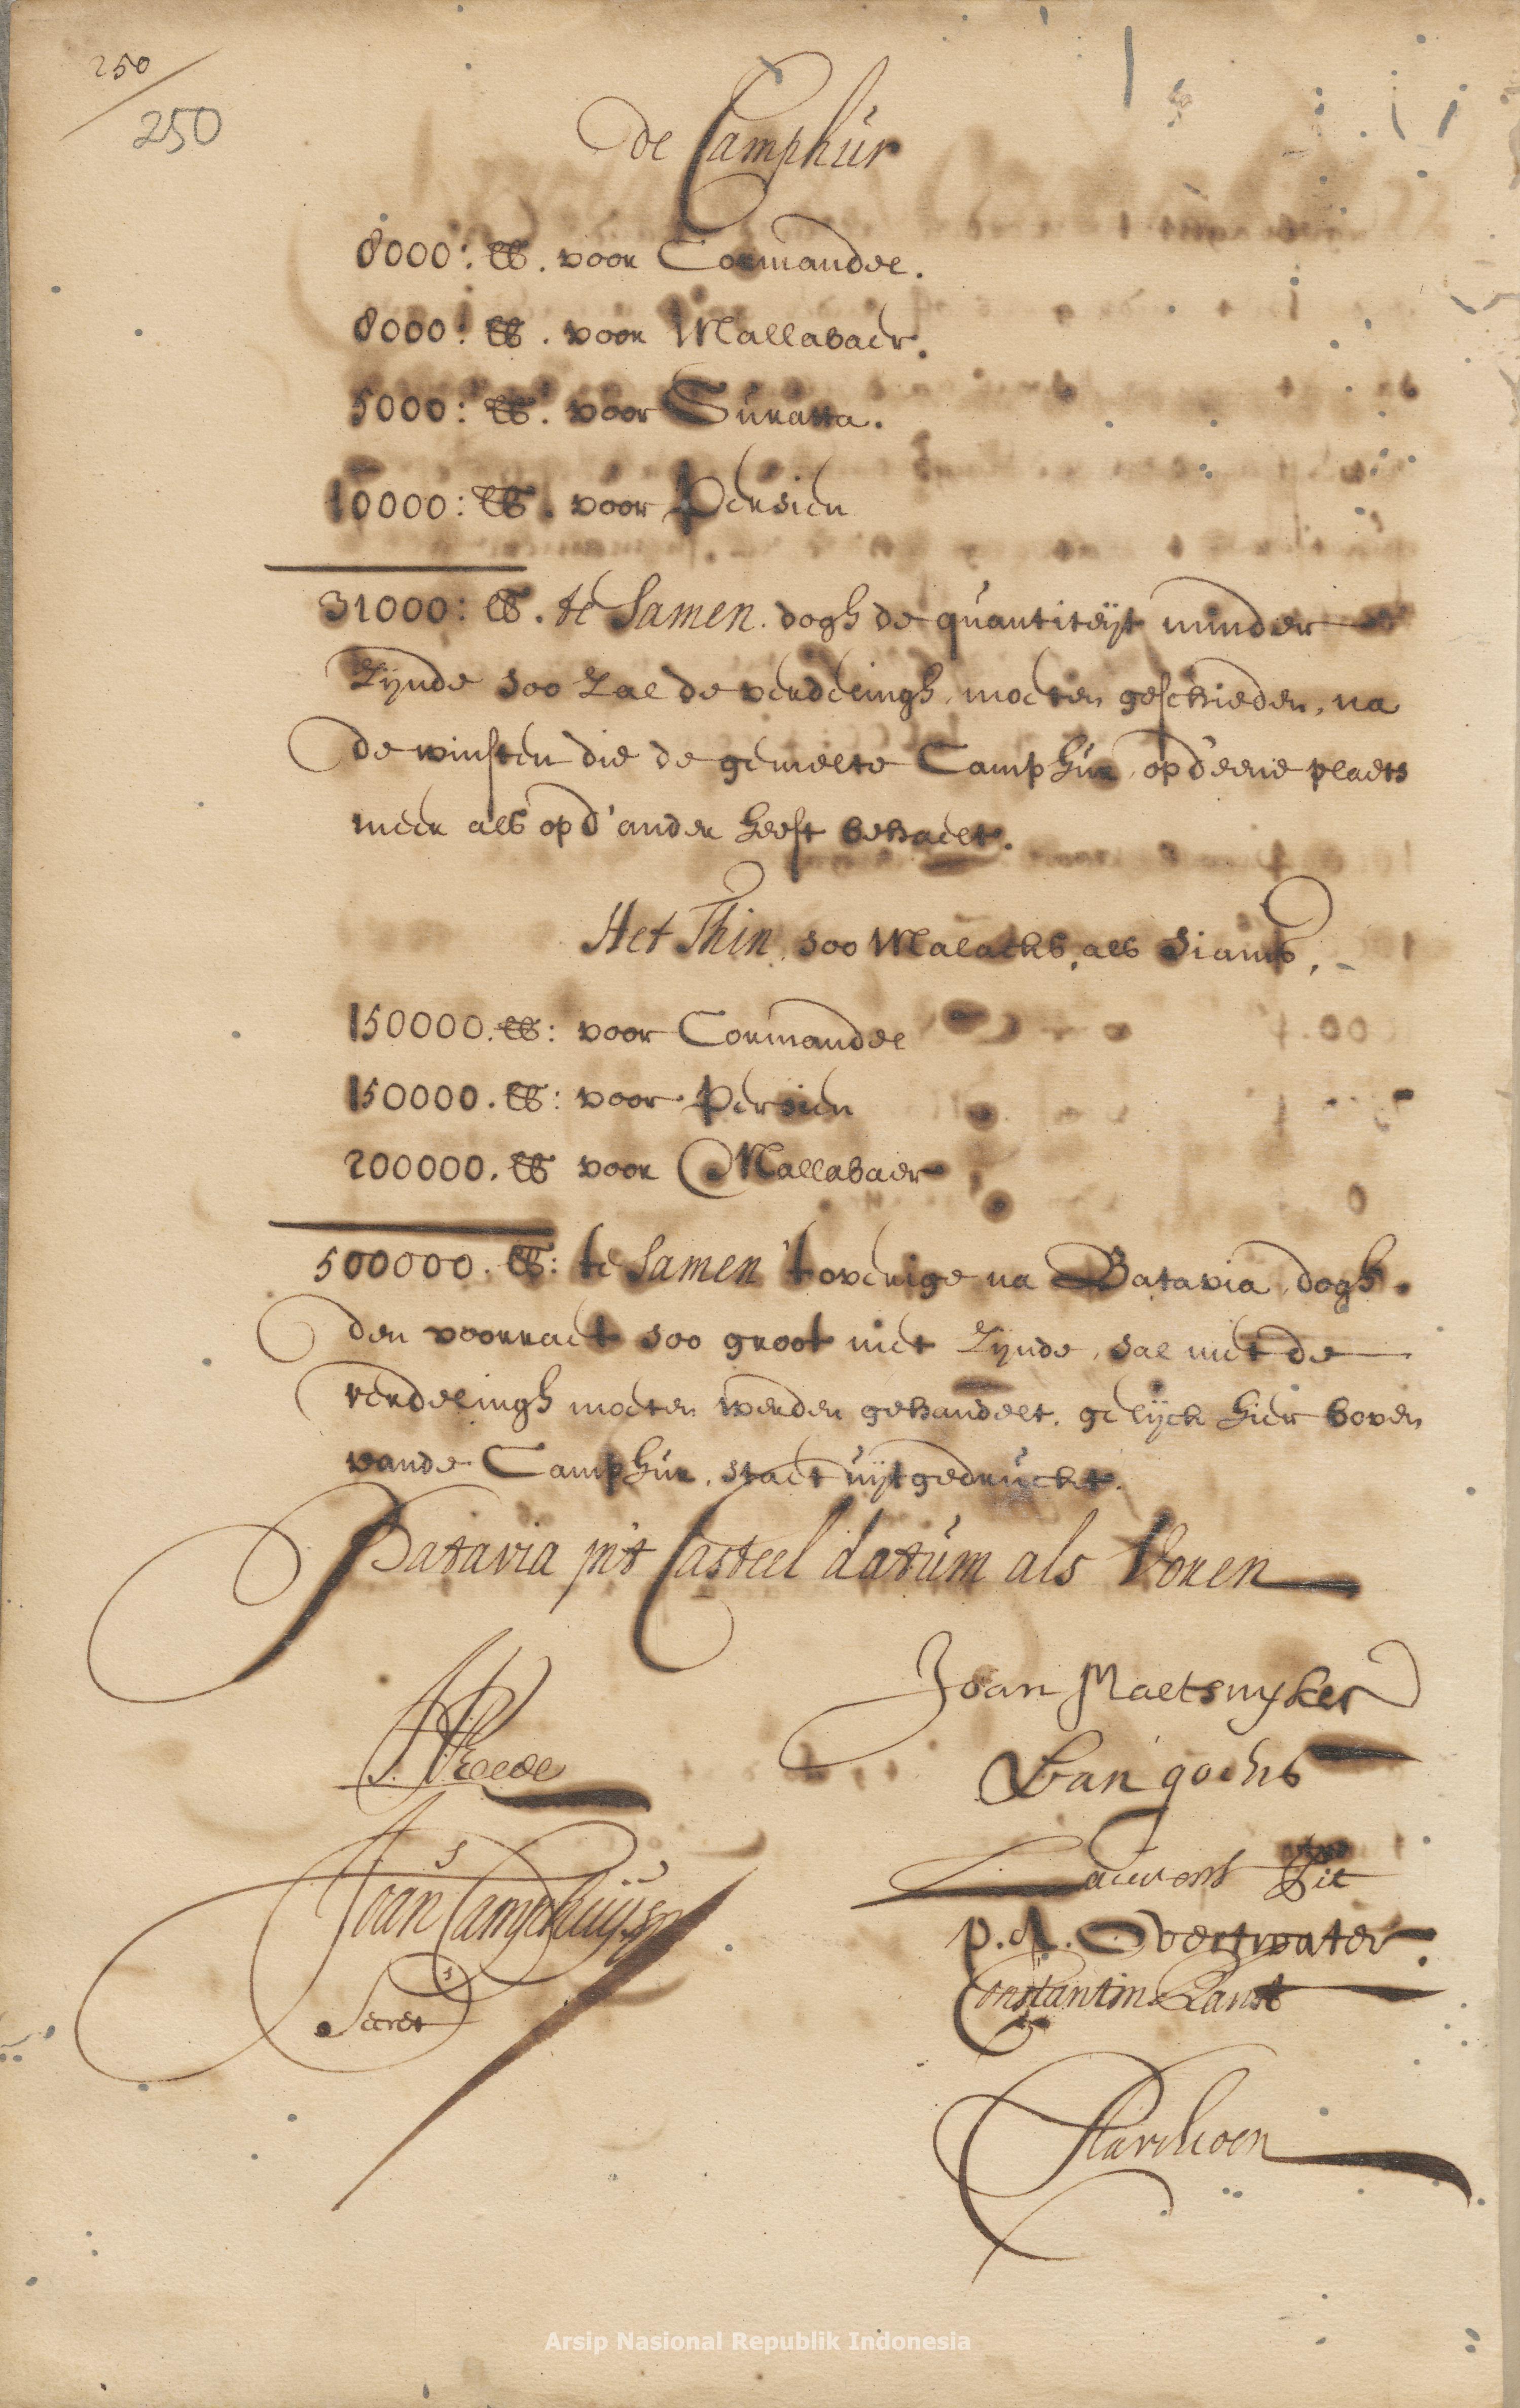 250
250
de Camphúr
8000: lb. voor Cormandel.
8000: lb. voor Mallabaer.
5000: lb. voor Súratta.
10000: lb. voor Persien
31000: lb. te Samen. dogh de quantiteÿt minder
zÿnde soo zal de verdelingh, moeten geschieden, na
de winsten die de gemelte Camphúr, op d'eene plaets
meer als op d'ander heeft behaelt.
Het Thin, soo Malacks, als Siams,
150000. lb: voor Cormandel
150000. lb: voor Persien
200000. lb voor Mallabaer
500000. lb: te Samen 't overige na Batavia, dogh
den voorraet soo groot niet zÿnde, sal met de
verdelingh moeten werden gehandelt, gelÿck hier boven
vande Camphúr, staet uÿtgedruckt.
Batavia in't Casteel datúm als Voren
Joan Maetsuyker
Van goens
Laurens Pit
P. A. Overtwater
Constantin Ranst
Joan Camphuijs
Secret
Arsip Nasional Republik Indonesia